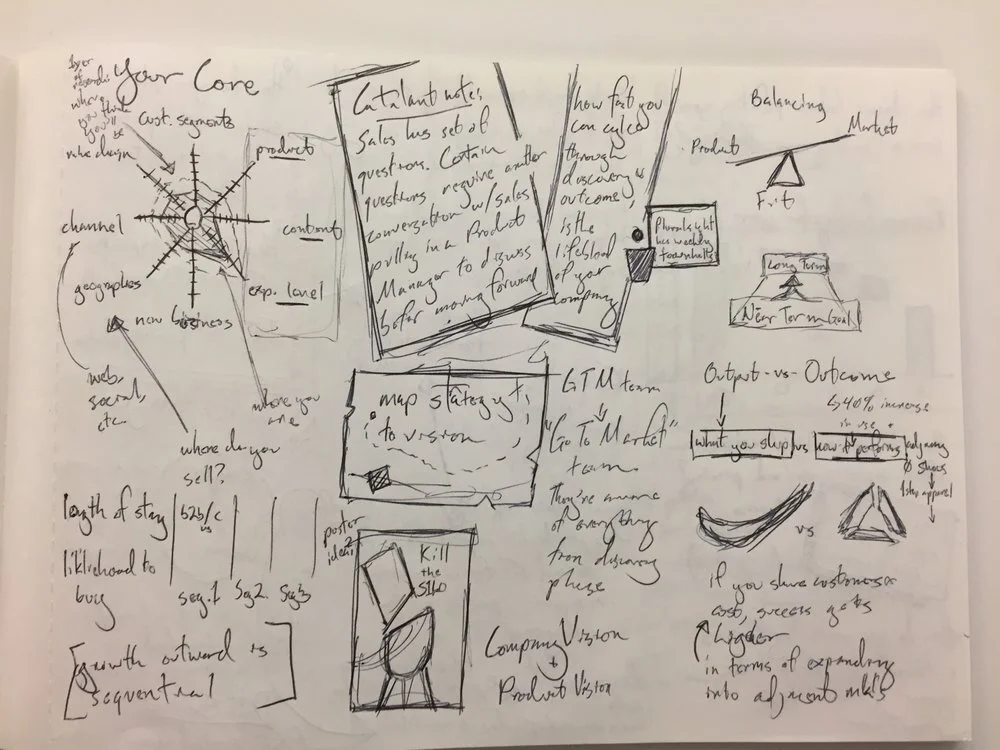 Your Core
layer
of
where
you think
you'll
be
cust. segments
value chain
product
channel
content
geographies
exp. level
new business
web,
social,
etc.
where you
are
where do you
sell?
length of stay
b2b/c
vs
liklihood to
buy
seg. 1
Seg 2.
Seg 3
[growth outward is
sequential]
Catalant notes:
Sales has set of
questions. Certain
questions require another
conversation w/ sales
pulling in a Product
Manager to discuss
before moving forward
how fast you
can cycle
through
discovery &
outcome,
is the
lifeblood
of your
company
Pluralsight
has weekly
townhalls
map strategy
to vision
GTM team
"Go To Market"
team.
They're aware
of everything
from discovery
phase
poster
idea?
Kill
the
Silo
Company Vision
Product Vision
Balancing
Product
Market
Fit
Long Term
Near Term Goal
Output -vs- Outcome
40% increase
in use
what you ship
vs
how it performs
adjacency
Ø shoes
1 step apparel
vs
if you share customers &
cost, success gets
higher
in terms of expanding
into adjacent mkts